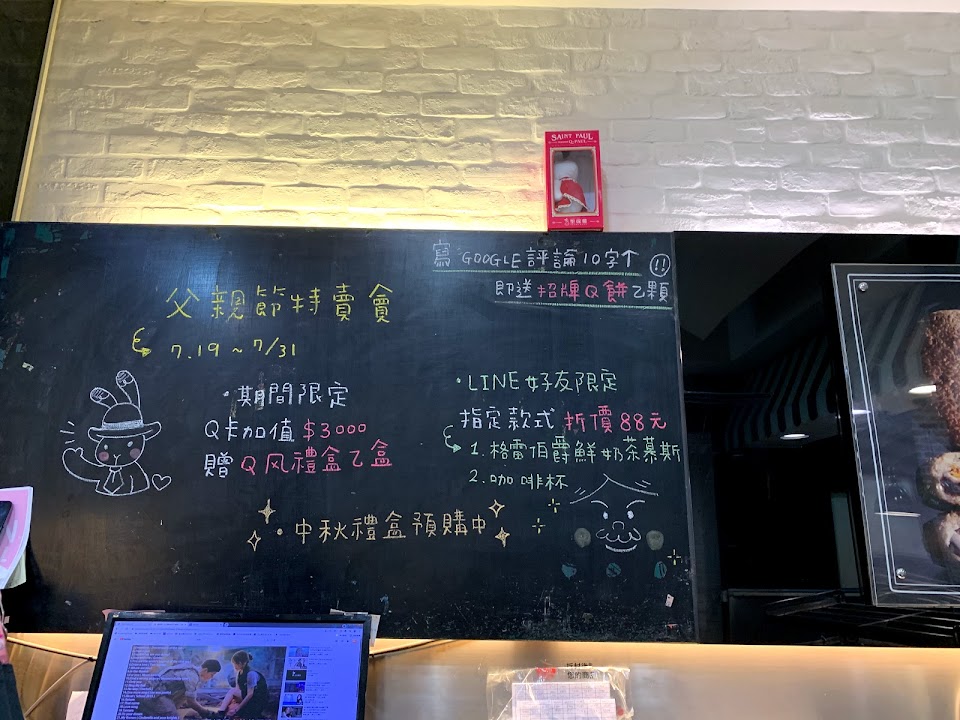 SAINT PAUL
Q-PAUL
寫 GOOGLE評論10字↑ !!
即送招牌Q餅乙顆
父親節特賣會
7.19~7/31
·期間限定
Q卡加值$3000
贈Q风禮盒乙盒
·LINE好友限定
指定款式折價88元
1.格雷伯爵鮮奶茶慕斯
2.咖啡杯
·中秋禮盒預購中